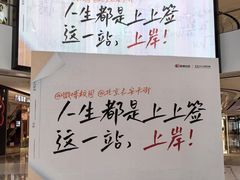 人生都是上上签
这一站，上岸！
@微博校园 @北京长安天街
人生都是上上签
这一站，上岸！